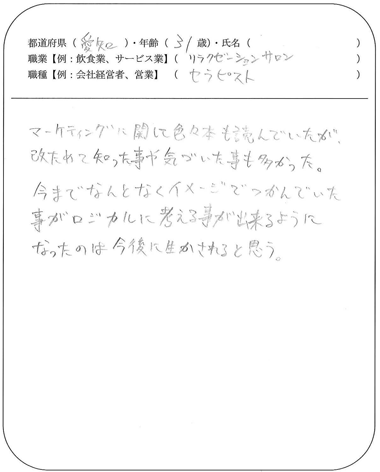 都道府県（愛知）・年齢（31歳）・氏名（　　　　）
職業【例：飲食業、サービス業】（リラクゼーションサロン）
職種【例：会社経営者、営業】（セラピスト）
マーケティングに関して色々本も読んでいたが、
改たれて知った事や気づいた事も多かった。
今までなんとなくイメージでつかんでいた
事がロジカルに考える事が出来るように
なったのは今後に生かされると思う。